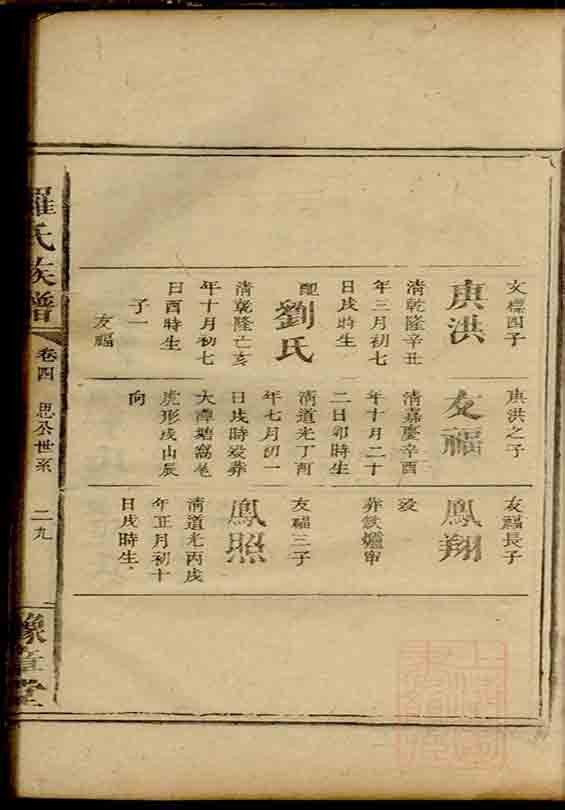 文標四子
庚洪
清乾隆辛丑
年三月初七
日戌時生
配
劉氏
清乾隆亡亥
年十月初七
日酉時生
子一
友福
庚洪之子
友福
清嘉慶辛酉
年十月二十
二日卯時生
清道光丁酉
年七月初一
日戌時歿葬
大潭塘窩巷
虎形戌山辰
向
友福長子
鳳翔
歿
葬鉄爐𡶶
友福三子
鳳照
清道光丙戌
年正月初十
日戌時生
羅氏族譜
卷四
思公世系
二九
豫章堂